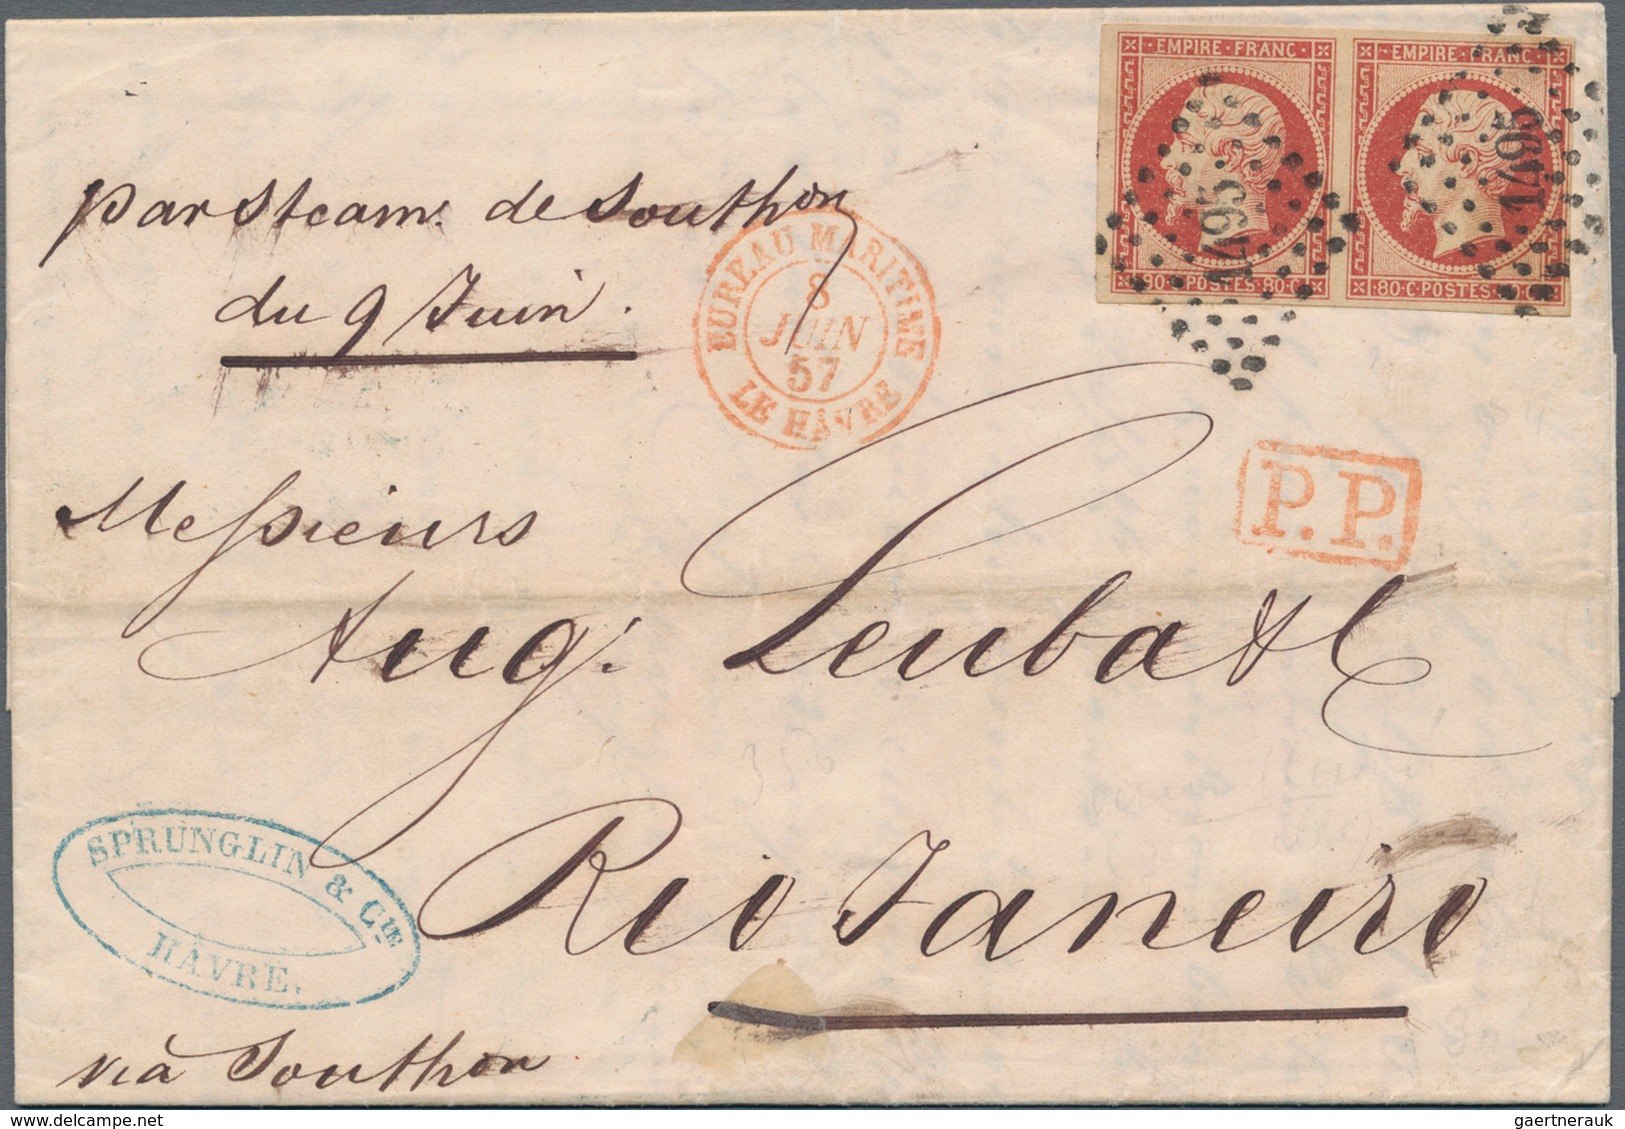 EMPIRE · FRANC · EMPIRE · FRANC ·
1495 1495
80 · C · POSTES · 80 · C · 80 · C · POSTES · 80 · C ·
par Steam. de Southon
du 9 Juin.
BUREAU MARITIME
8
JUIN
57
LE HÂVRE
P.P.
Messieurs
Aug. Leuba & C
Rio Janeiro
SPRUNGLIN & CIE
HÂVRE.
via Southon
delcampe.net
gaertnerauk